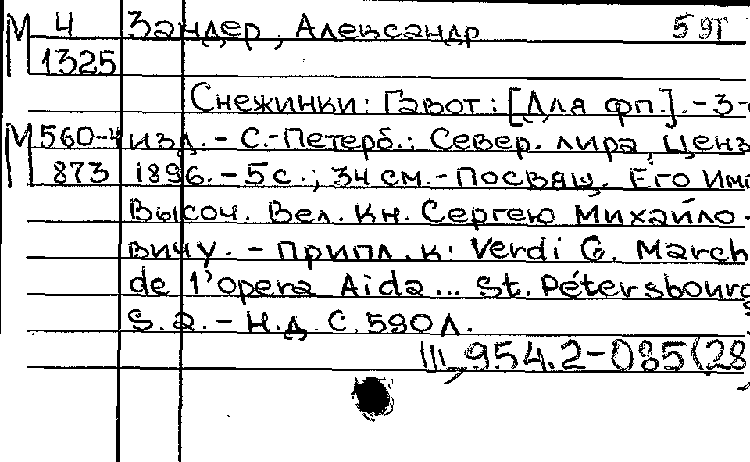 М 4 Зандер, Александр 5 ЯГ
1325
Снежинки: Гавот: [Для фп.]. - 3-
М 560-4 изд. - С.-Петерб.: Север. лира, Ценз
873 1896. - 5 с.; 34 см. - Посвящ. Его Имп
Высоч. Вел. Кн. Сергею Михайло-
вичу. - Припл. к: Verdi G. March
de l'opera Aida... St. Pétersbourg
S. a. - Н.д. С. 590 Л.
Ш, 954.2-085(28